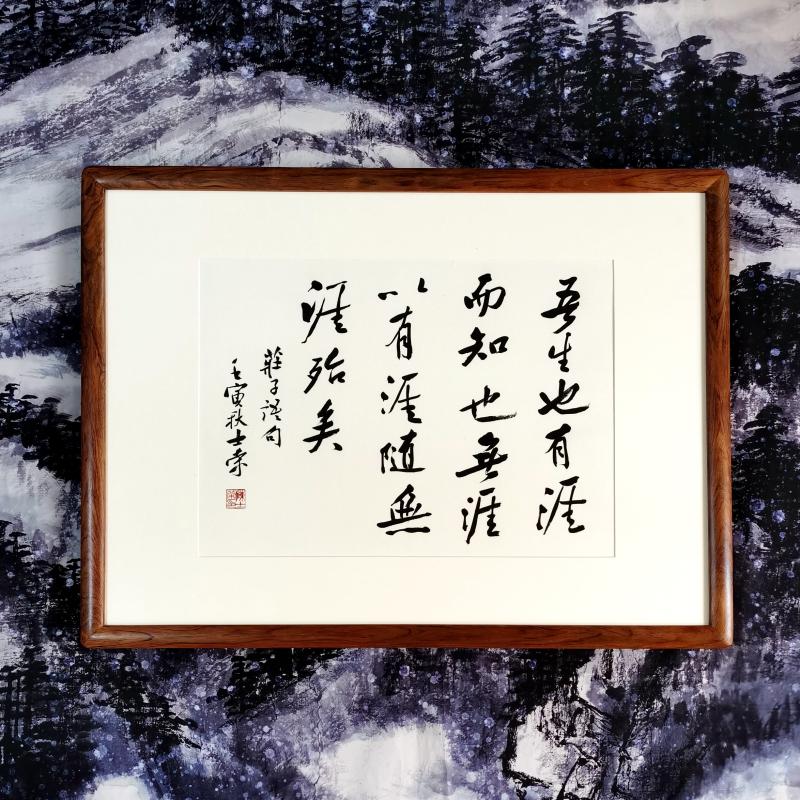 吾生也有涯
而知也無涯
以有涯随無
涯殆矣
莊子語句
壬寅秋士